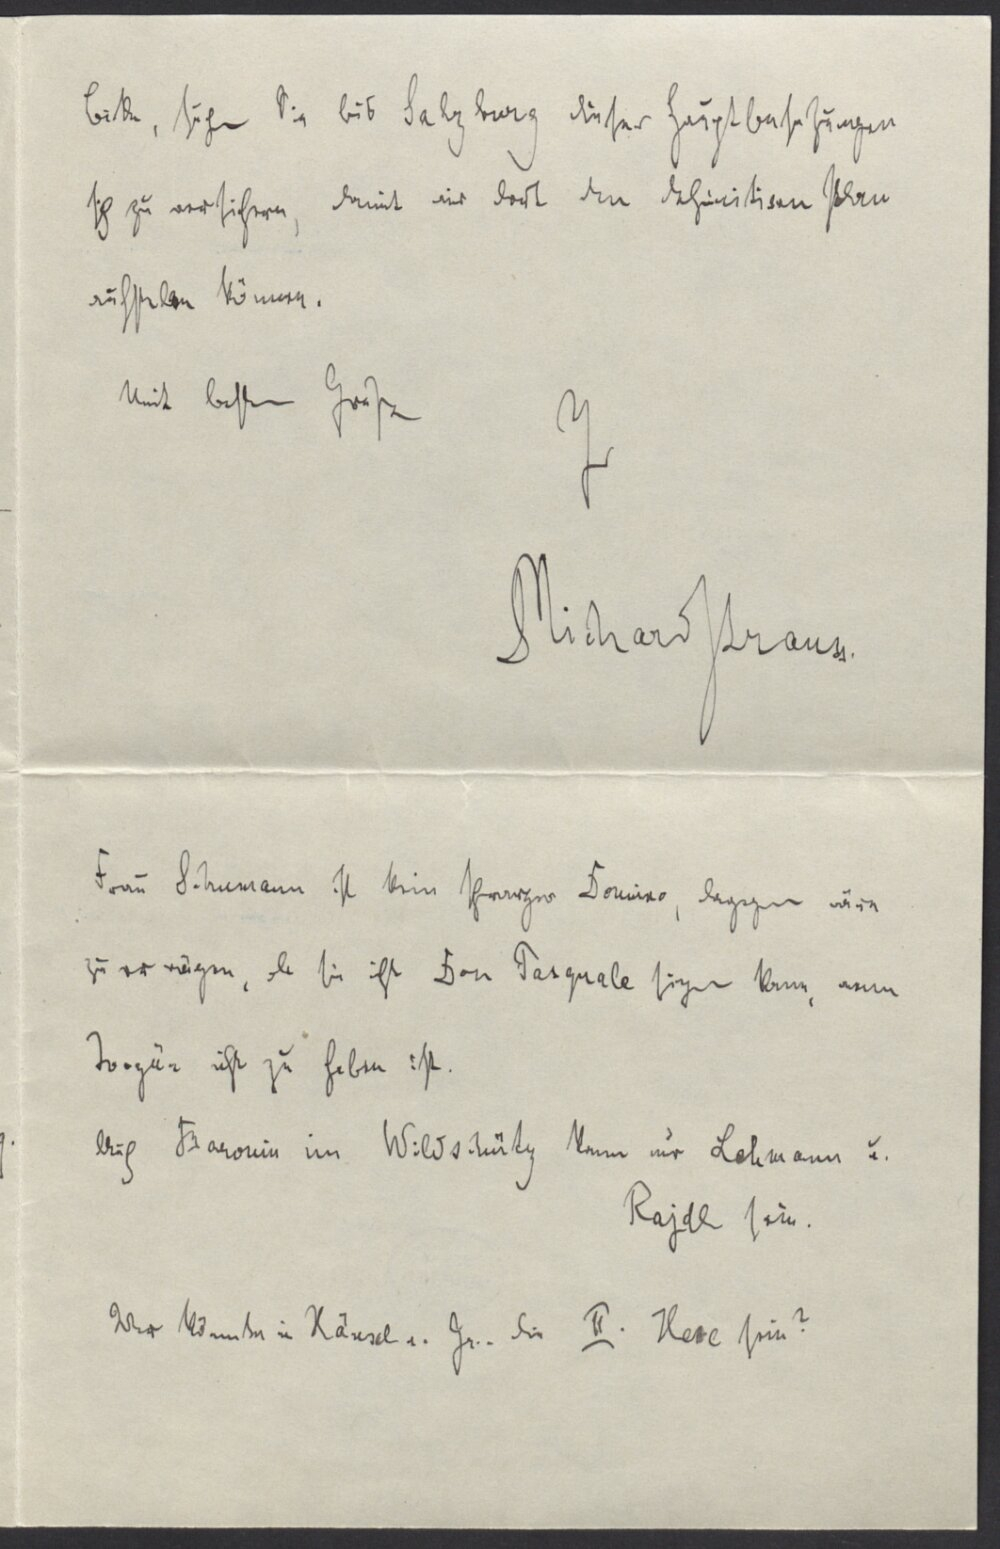 bitte, suchen Sie bis Salzburg dieser Hauptbesetzungen
sich zu versichern, damit wir dort den definitiven Plan
aufstellen können.
Mit besten Grüßen
Ihr
Richard Strauss.
Frau Schumann ist kein schwarzer Domino, dagegen wäre
zu erwägen, ob sie nicht Don Pasquale singen kann, wenn
Ivogün nicht zu haben ist.
Auch Baronin im Wildschütz kann nur Lehmann u.
Rajdl sein.
Wer könnte in Hänsel u. Gr.. die II. Hexe sein?